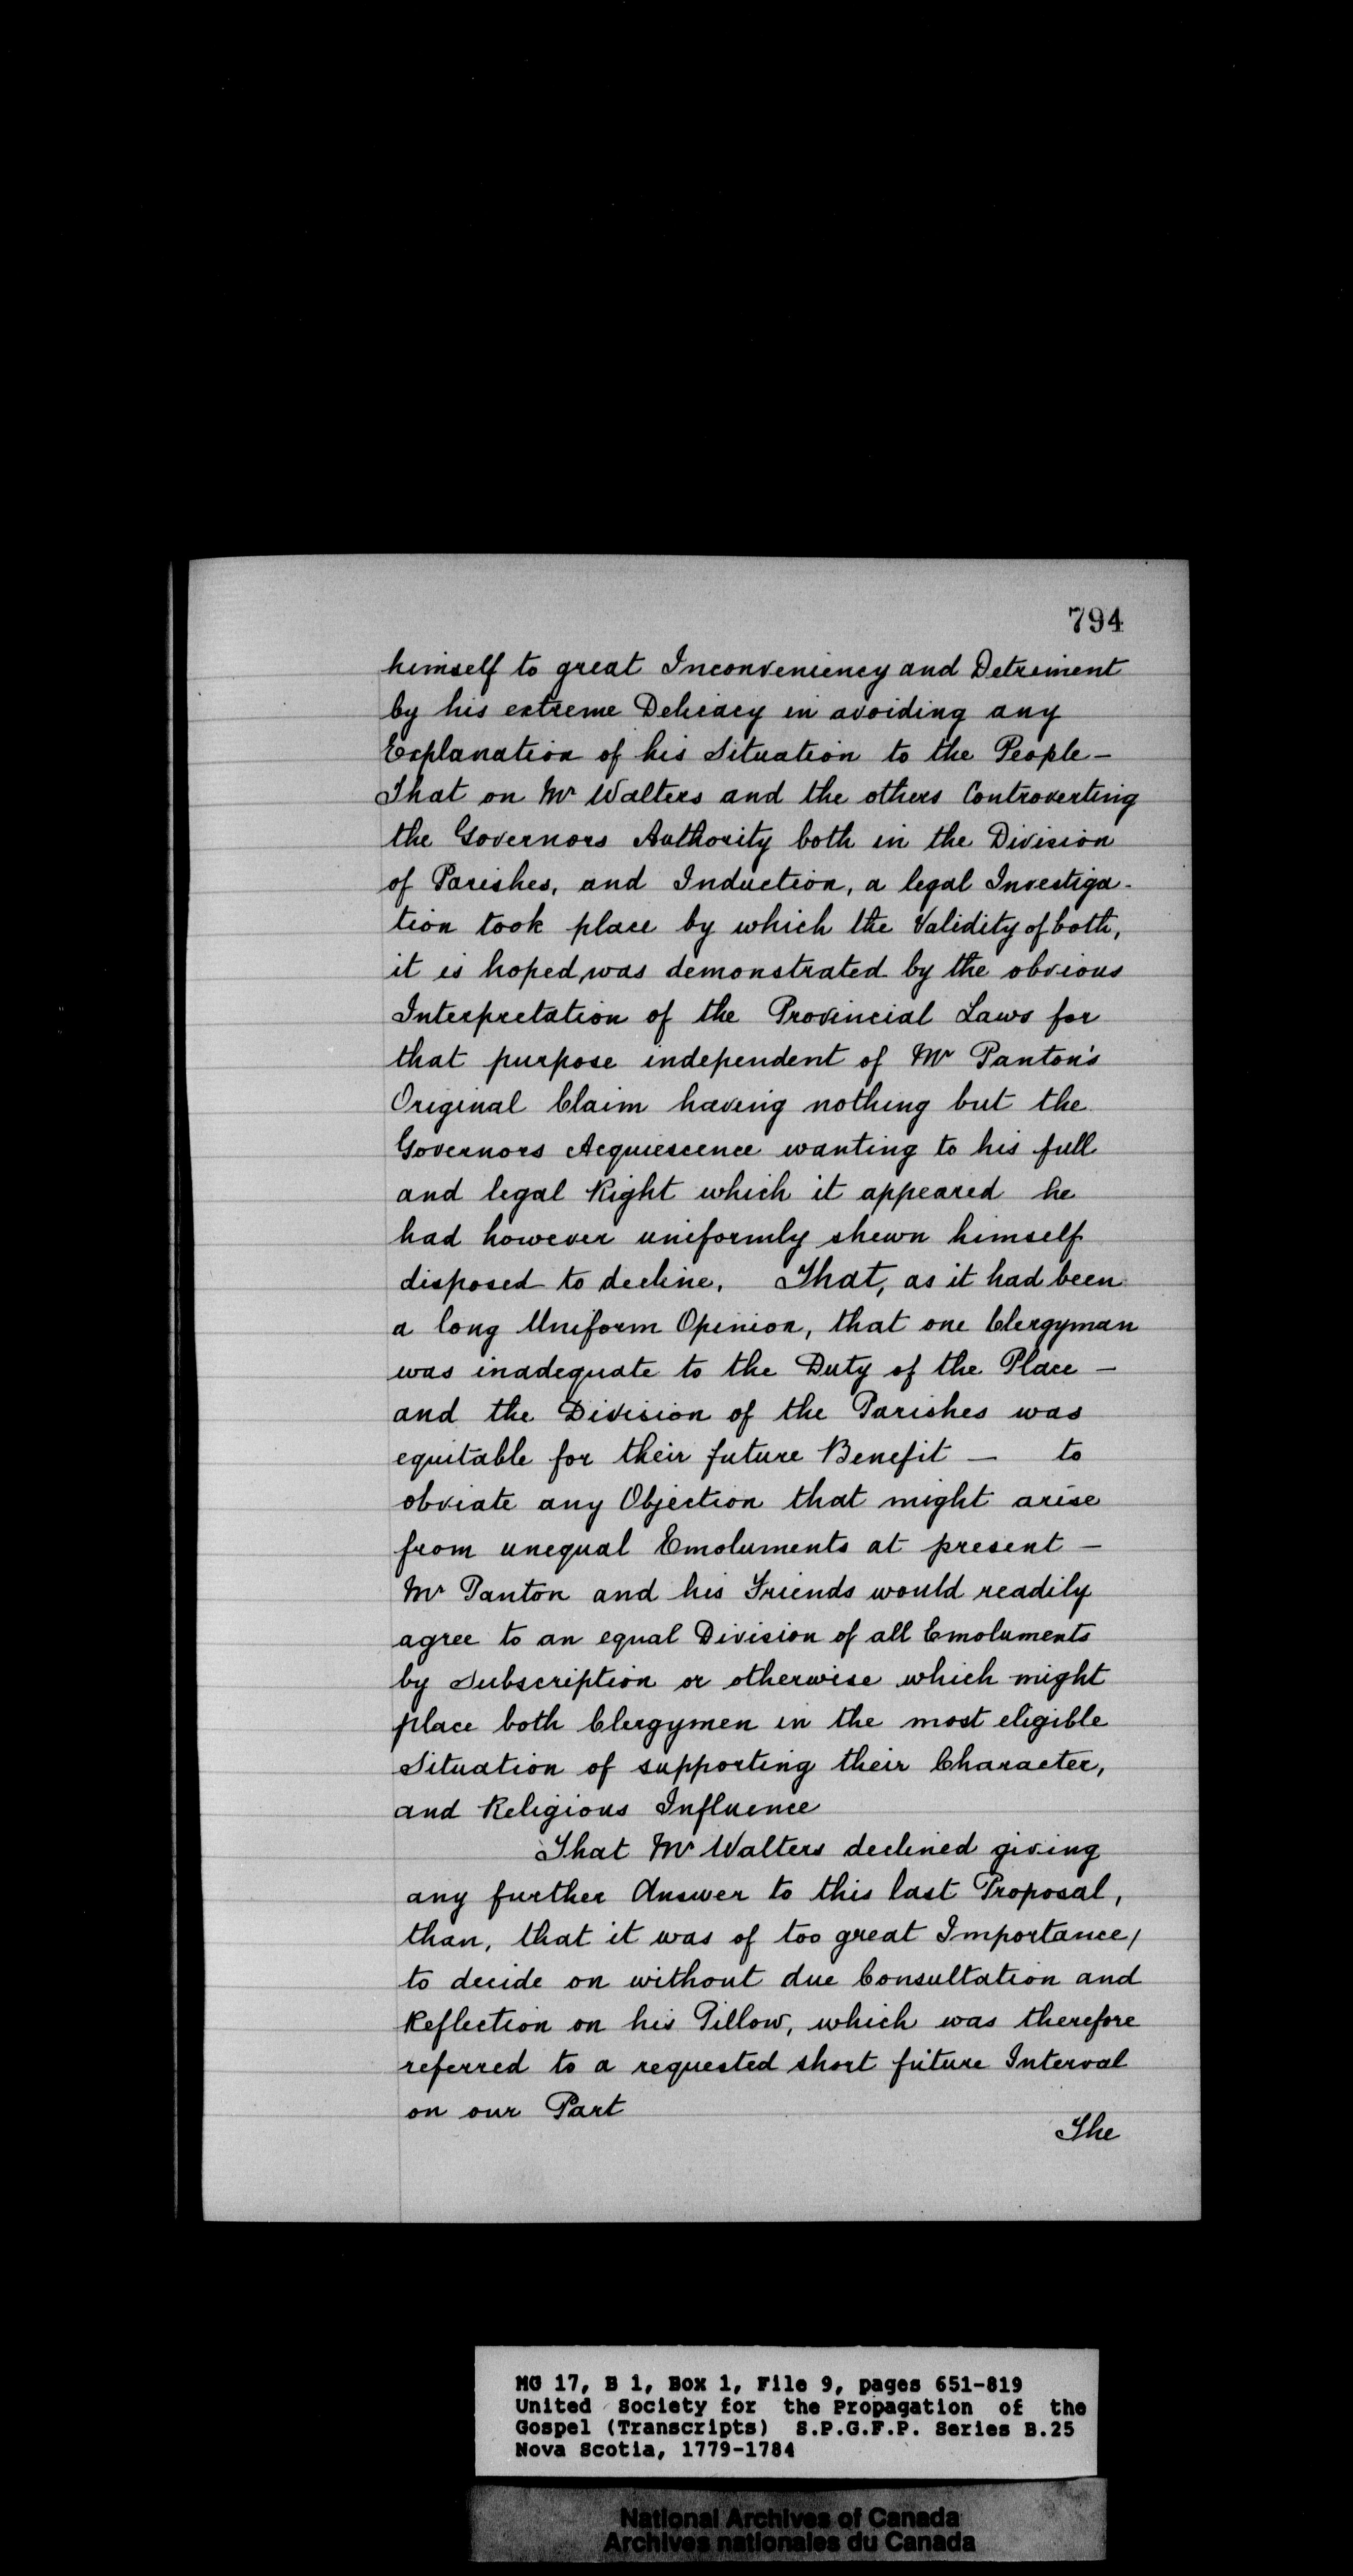 794
himself to great Inconveniency and Detriment
by his extreme Delicacy in avoiding any
Explanation of his Situation to the People —
That on Mr Walters and the others Controverting
the Governors Authority both in the Division
of Parishes, and Induction, a legal Investiga-
tion took place by which the Validity of both,
it is hoped, was demonstrated by the obvious
Interpretation of the Provincial Laws for
that purpose independent of Mr Panton's
Original Claim having nothing but the
Governors Acquiescence wanting to his full
and legal Right which it appeared he
had however uniformly shewn himself
disposed to decline. That, as it had been
a long Uniform Opinion, that one Clergyman
was inadequate to the Duty of the Place —
and the Division of the Parishes was
equitable for their future Benefit — to
obviate any Objection that might arise
from unequal Emoluments at present —
Mr Panton and his Friends would readily
agree to an equal Division of all Emoluments
by Subscription or otherwise which might
place both Clergymen in the most eligible
Situation of supporting their Character,
and Religious Influence
That Mr Walters declined giving
any further Answer to this last Proposal,
than, that it was of too great Importance/
to decide on without due Consultation and
Reflection on his Pillow, which was therefore
referred to a requested short future Interval
on our Part
The
MG 17, B 1, Box 1, File 9, pages 651-819
United Society for the Propagation of the
Gospel (Transcripts) S.P.G.F.P. Series B.25
Nova Scotia, 1779-1784
National Archives of Canada
Archives nationales du Canada